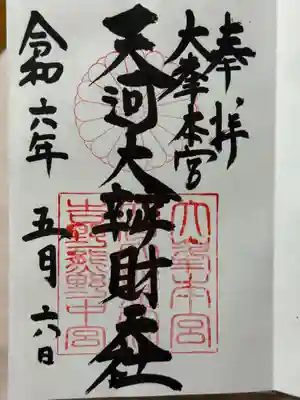 奉拝
大峯本宮
天河大辨財天社
令和六年 五月六日
大峯本宮
吉野熊野中宮